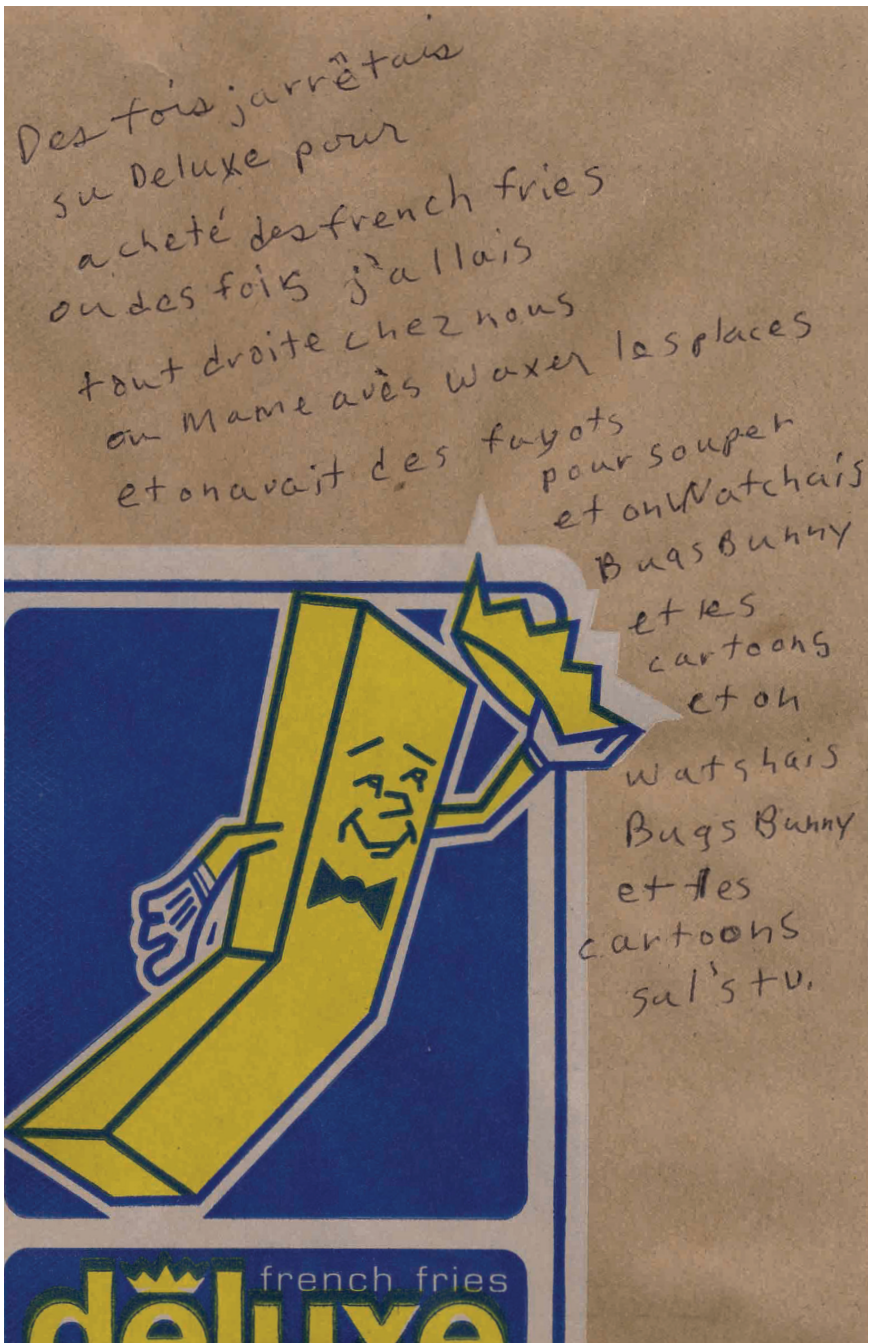 Des fois jarrêtais
su Deluxe pour
acheté des french fries
ou des fois j'allais
tout droite chez nous
ou Mame avès waxer les places
et on avait des fayots
pour souper
et on Watchais
Bugs Bunny
et les
cartoons
et on
watshais
Bugs Bunny
et les
cartoons
su l's tv.
french fries
deluxe